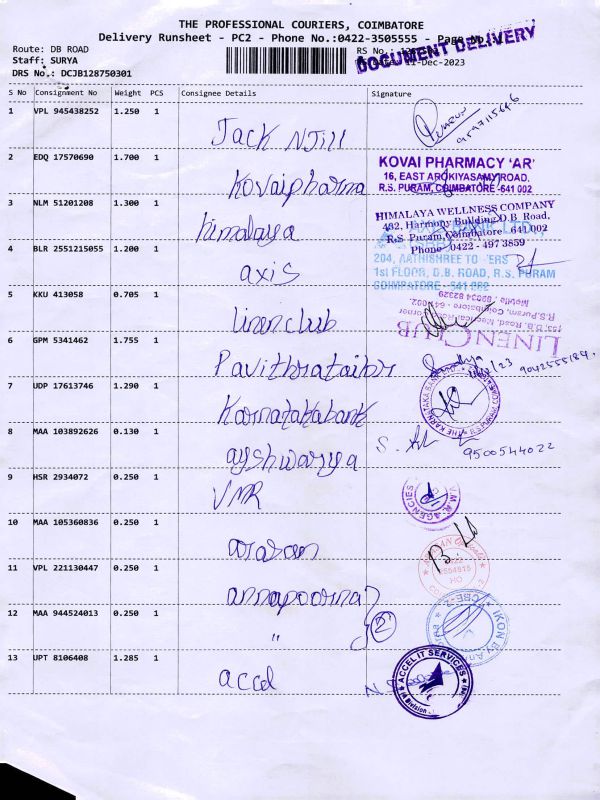 THE PROFESSIONAL COURIERS, COIMBATORE
Delivery Runsheet - PC2 - Phone No.:0422-3505555 - Page No.:
DOCUMENT DELIVERY
Route: DB ROAD
RS No.:
Staff: SURYA
11-Dec-2023
DRS No.: DCJB128750301
S No Consignment No Weight PCS Consignee Details Signature
1 VPL 945438252 1.250 1 Jack N Jill
2 EDQ 17570690 1.700 1 Kovaipharma
KOVAI PHARMACY 'AR'
16, EAST AROKIYASAMY ROAD,
R.S. PURAM, COIMBATORE -641 002
3 NLM 51201208 1.300 1 himalaya
HIMALAYA WELLNESS COMPANY
482, Harmony Building D.B. Road,
R.S. Puram, Coimbatore - 641 002
Phone : 0422 - 497 3859
4 BLR 2551215055 1.200 1 axis
204, AATHISHREE TO ERS
1st FLOOR, D.B. ROAD, R.S. PURAM
COIMBATORE - 641 002
5 KKU 413058 0.705 1 linenclub
LINEN CLUB
6 GPM 5341462 1.755 1 Pavithratailor
9042555184.
7 UDP 17613746 1.290 1 Karnatakabank
8 MAA 103892626 0.130 1 ayshwarya
9500544022
9 HSR 2934072 0.250 1 VMR
V.M.R. AGENCIES
10 MAA 105360836 0.250 1 arasan
11 VPL 221130447 0.250 1 annapoorna
12 MAA 944524013 0.250 1 "
2
13 UPT 8106408 1.285 1 accel
ACCEL IT SERVICES